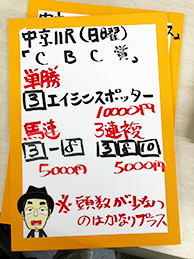 中京11R(日曜)
「CBC賞」
単勝
3エイシンスポッター
10000円
馬連 3連複
3-5 3510
5000円 5000円
※頭数が少ない
のはかなりプラス